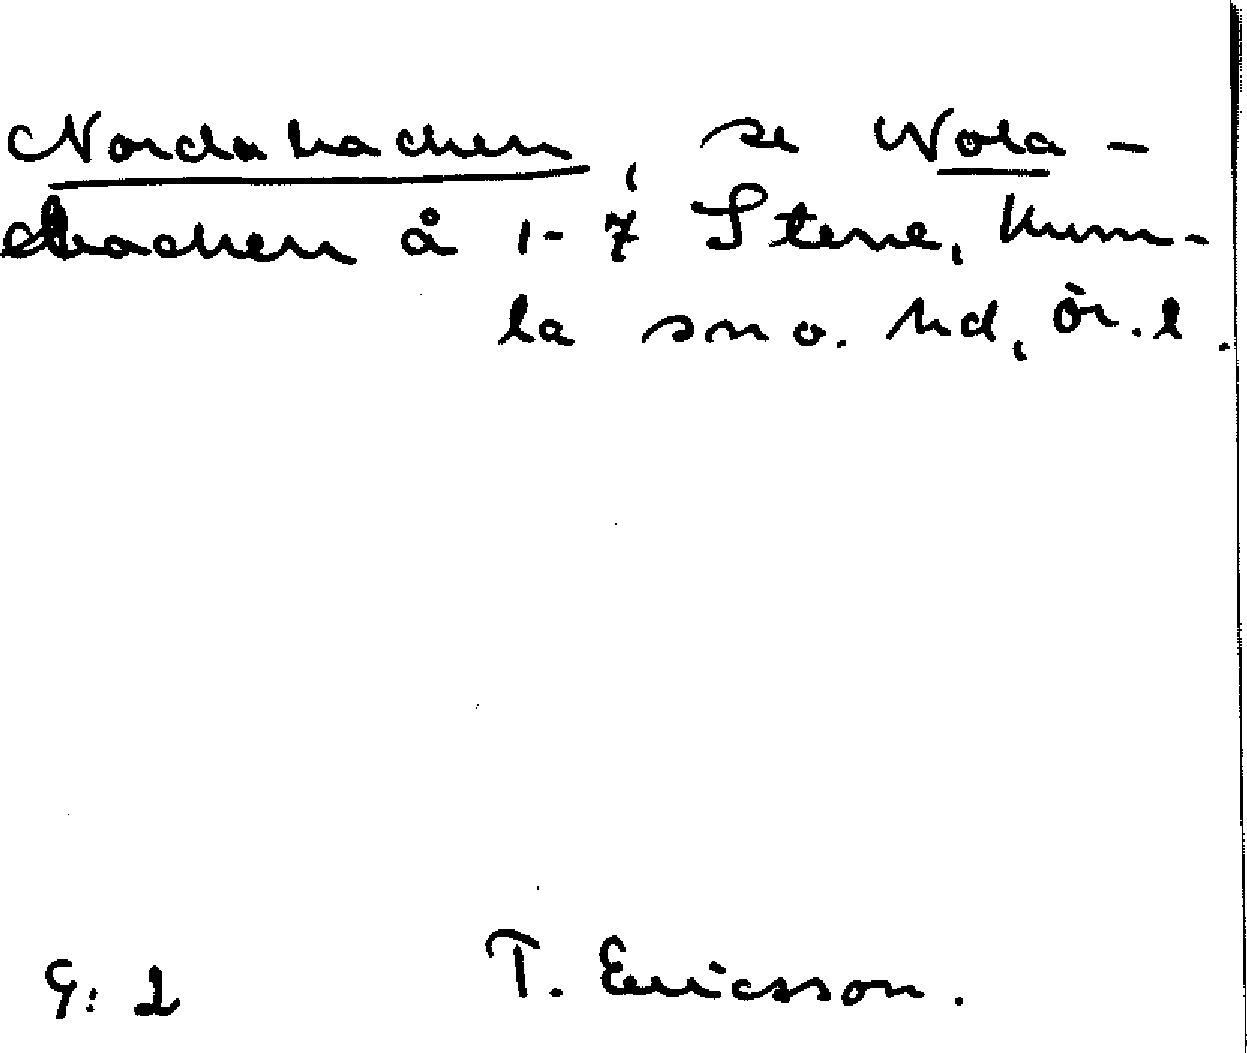 Norda backen, se Nola -
backen å 1-7 Stene, Kum-
la sn o. hd, ör. l.
G: 2 T. Ericsson.